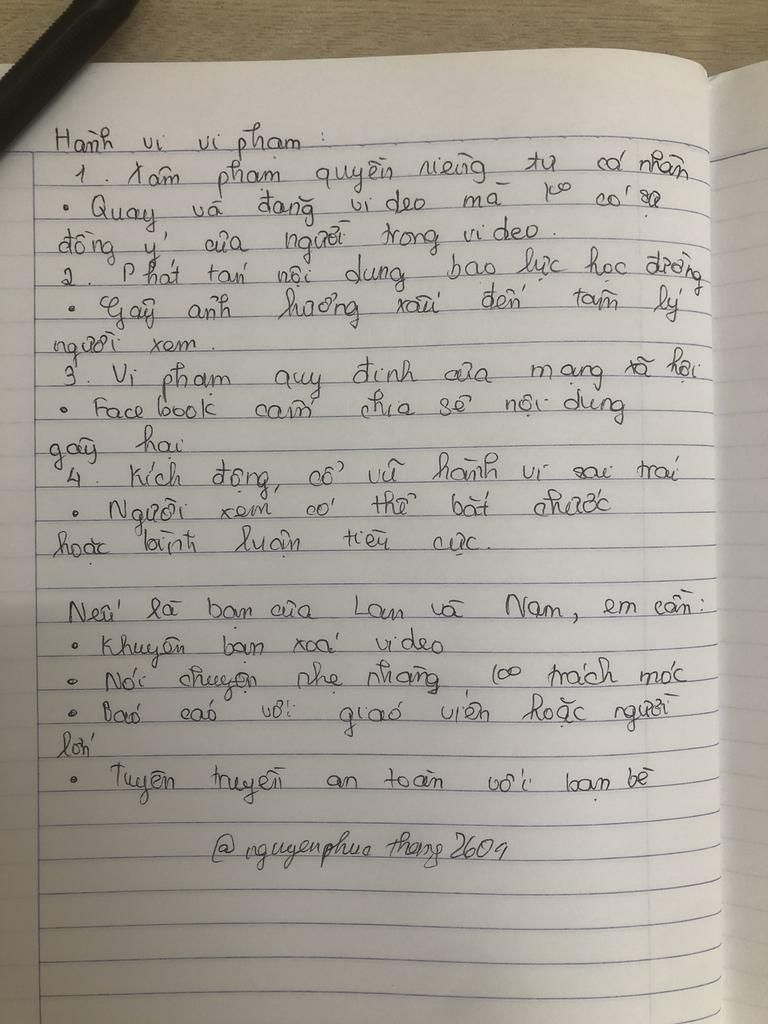 Hành vi vi phạm :
1. Xâm phạm quyền riêng tư cá nhân
• Quay và đăng video mà ko có sự
đồng ý của người trong video.
2. Phát tán nội dung bạo lực học đường
• Gây ảnh hưởng xấu đến tâm lý
người xem.
3. Vi phạm quy định của mạng xã hội
• Facebook cấm chia sẻ nội dung
gây hại
4. Kích động, cổ vũ hành vi sai trái
• Người xem có thể bắt chước
hoặc bình luận tiêu cực.
Nếu là bạn của Lan và Nam, em cần:
• Khuyên bạn xoá video
• Nói chuyện nhẹ nhàng ko trách móc
• Báo cáo với giáo viên hoặc người
lớn
• Tuyên truyền an toàn với bạn bè
@nguyenphucthang2609